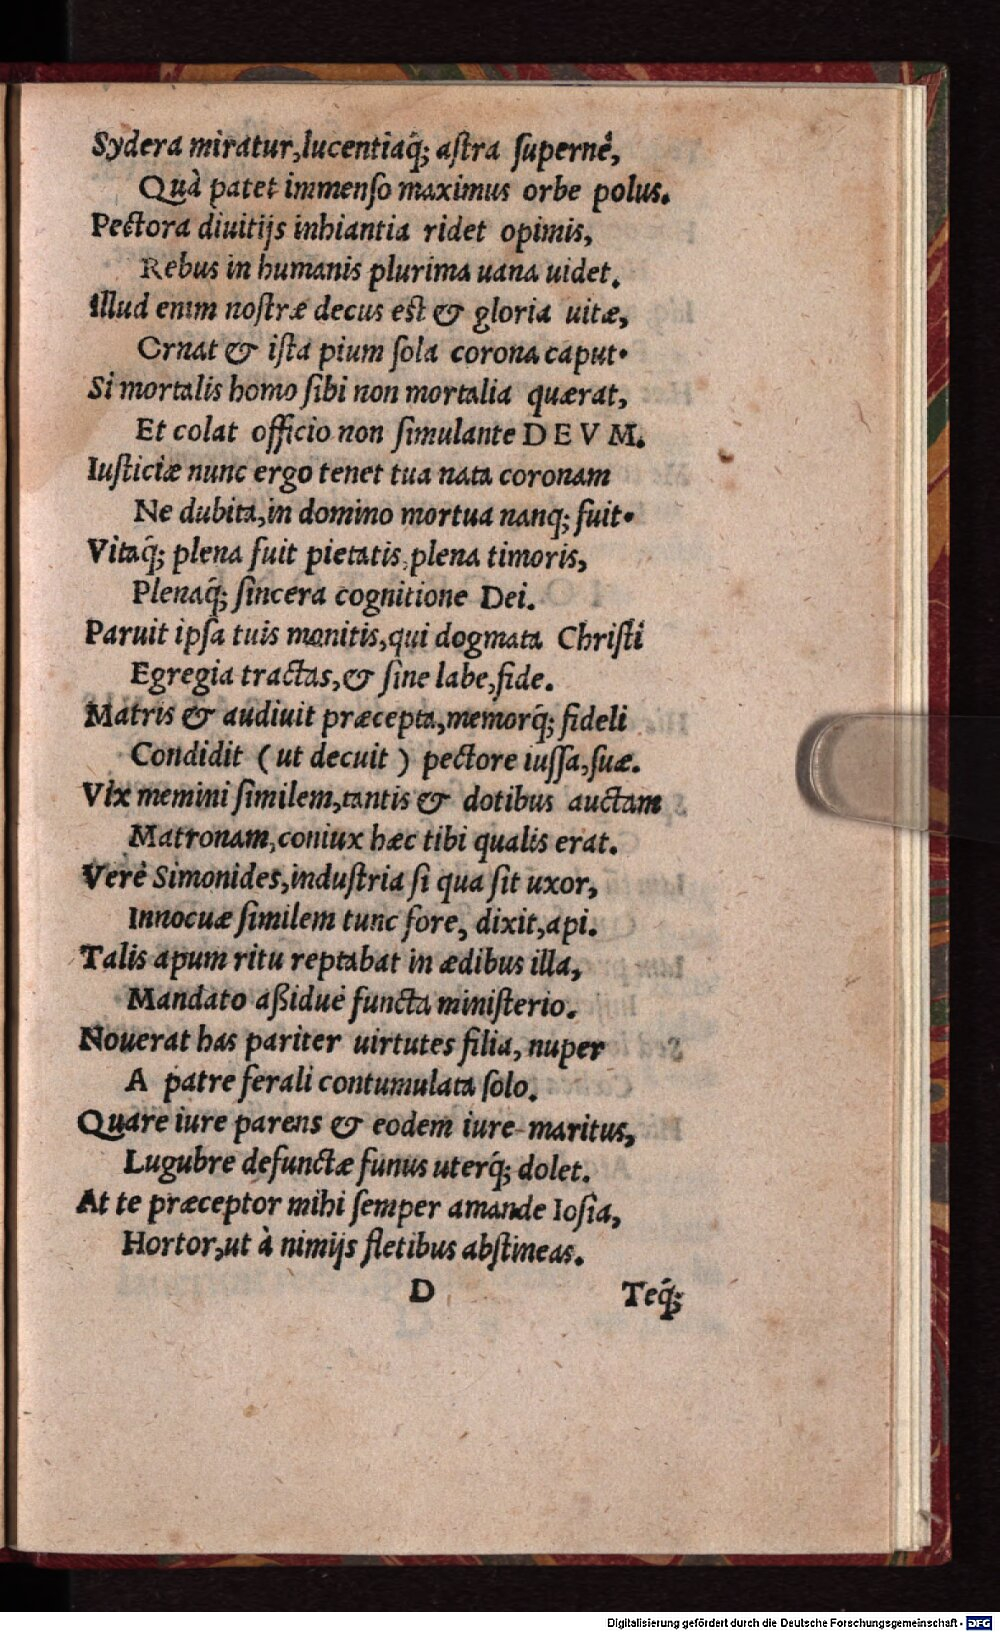 Sydera miratur, lucentiaq́; aſtra ſupernè,
Quà patet immenſo maximus orbe polus.
Pectora diuitijs inhiantia ridet opimis,
Rebus in humanis plurima uana uidet.
Illud enim noſtræ decus eſt & gloria uitæ,
Ornat & iſta pium ſola corona caput.
Si mortalis homo ſibi non mortalia quærat,
Et colat officio non ſimulante DEVM.
Iuſticiæ nunc ergo tenet tua nata coronam
Ne dubita, in domino mortua nanq; fuit.
Vitaq́; plena fuit pietatis, plena timoris,
Plenaq́; ſincera cognitione Dei.
Paruit ipſa tuis monitis, qui dogmata Chriſti
Egregia tractas, & ſine labe, fide.
Matris & audiuit præcepta, memorq́; fideli
Condidit (ut decuit) pectore iuſſa, ſuæ.
Vix memini ſimilem, tantis & dotibus auctam
Matronam, coniux hæc tibi qualis erat.
Verè Simonides, induſtria ſi qua ſit uxor,
Innocuæ ſimilem tunc fore, dixit, api.
Talis apum ritu reptabat in ædibus illa,
Mandato aßiduè functa miniſterio.
Nouerat has pariter uirtutes filia, nuper
A patre ferali contumulata ſolo.
Quare iure parens & eodem iure maritus,
Lugubre defunctæ funus uterq́; dolet.
At te præceptor mihi ſemper amande Ioſia,
Hortor, ut à nimijs fletibus abſtineas.
D Teq́;
Digitalisierung gefördert durch die Deutsche Forschungsgemeinschaft - DFG